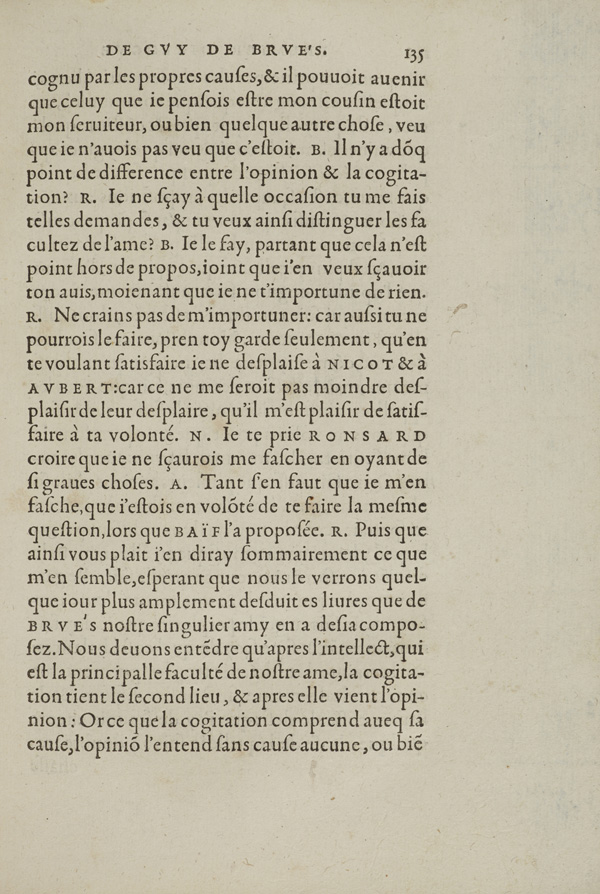 DE GVY DE BRVE'S. 135
cognu par les propres cauſes, & il pouuoit auenir
que celuy que ie penſois eſtre mon couſin eſtoit
mon ſeruiteur, ou bien quelque autre choſe, veu
que ie n'auois pas veu que c'eſtoit. B. Il n'y a dõq
point de difference entre l'opinion & la cogita-
tion? R. Ie ne ſçay à quelle occaſion tu me fais
telles demandes, & tu veux ainſi diſtinguer les fa
cultez de l'ame? B. Ie le fay, partant que cela n'eſt
point hors de propos, ioint que i'en veux ſçauoir
ton auis, moienant que ie ne t'importune de rien.
R. Ne crains pas de m'importuner: car auſsi tu ne
pourrois le faire, pren toy garde ſeulement, qu'en
te voulant ſatisfaire ie ne deſplaiſe à NICOT & à
AVBERT: car ce ne me ſeroit pas moindre deſ-
plaiſir de leur deſplaire, qu'il m'eſt plaiſir de ſatiſ-
faire à ta volonté. N. Ie te prie RONSARD
croire que ie ne ſçaurois me faſcher en oyant de
ſi graues choſes. A. Tant ſ'en faut que ie m'en
faſche, que i'eſtois en volõté de te faire la meſme
queſtion, lors que BAÏF l'a propoſée. R. Puis que
ainſi vous plait i'en diray ſommairement ce que
m'en ſemble, eſperant que nous le verrons quel-
que iour plus amplement deſduit es liures que de
BRVE'S noſtre ſingulier amy en a deſia compo-
ſez. Nous deuons entẽdre qu'apres l'intellect, qui
eſt la principalle faculté de noſtre ame, la cogita-
tion tient le ſecond lieu, & apres elle vient l'opi-
nion: Or ce que la cogitation comprend aueq ſa
cauſe, l'opiniõ l'entend ſans cauſe aucune, ou biẽ